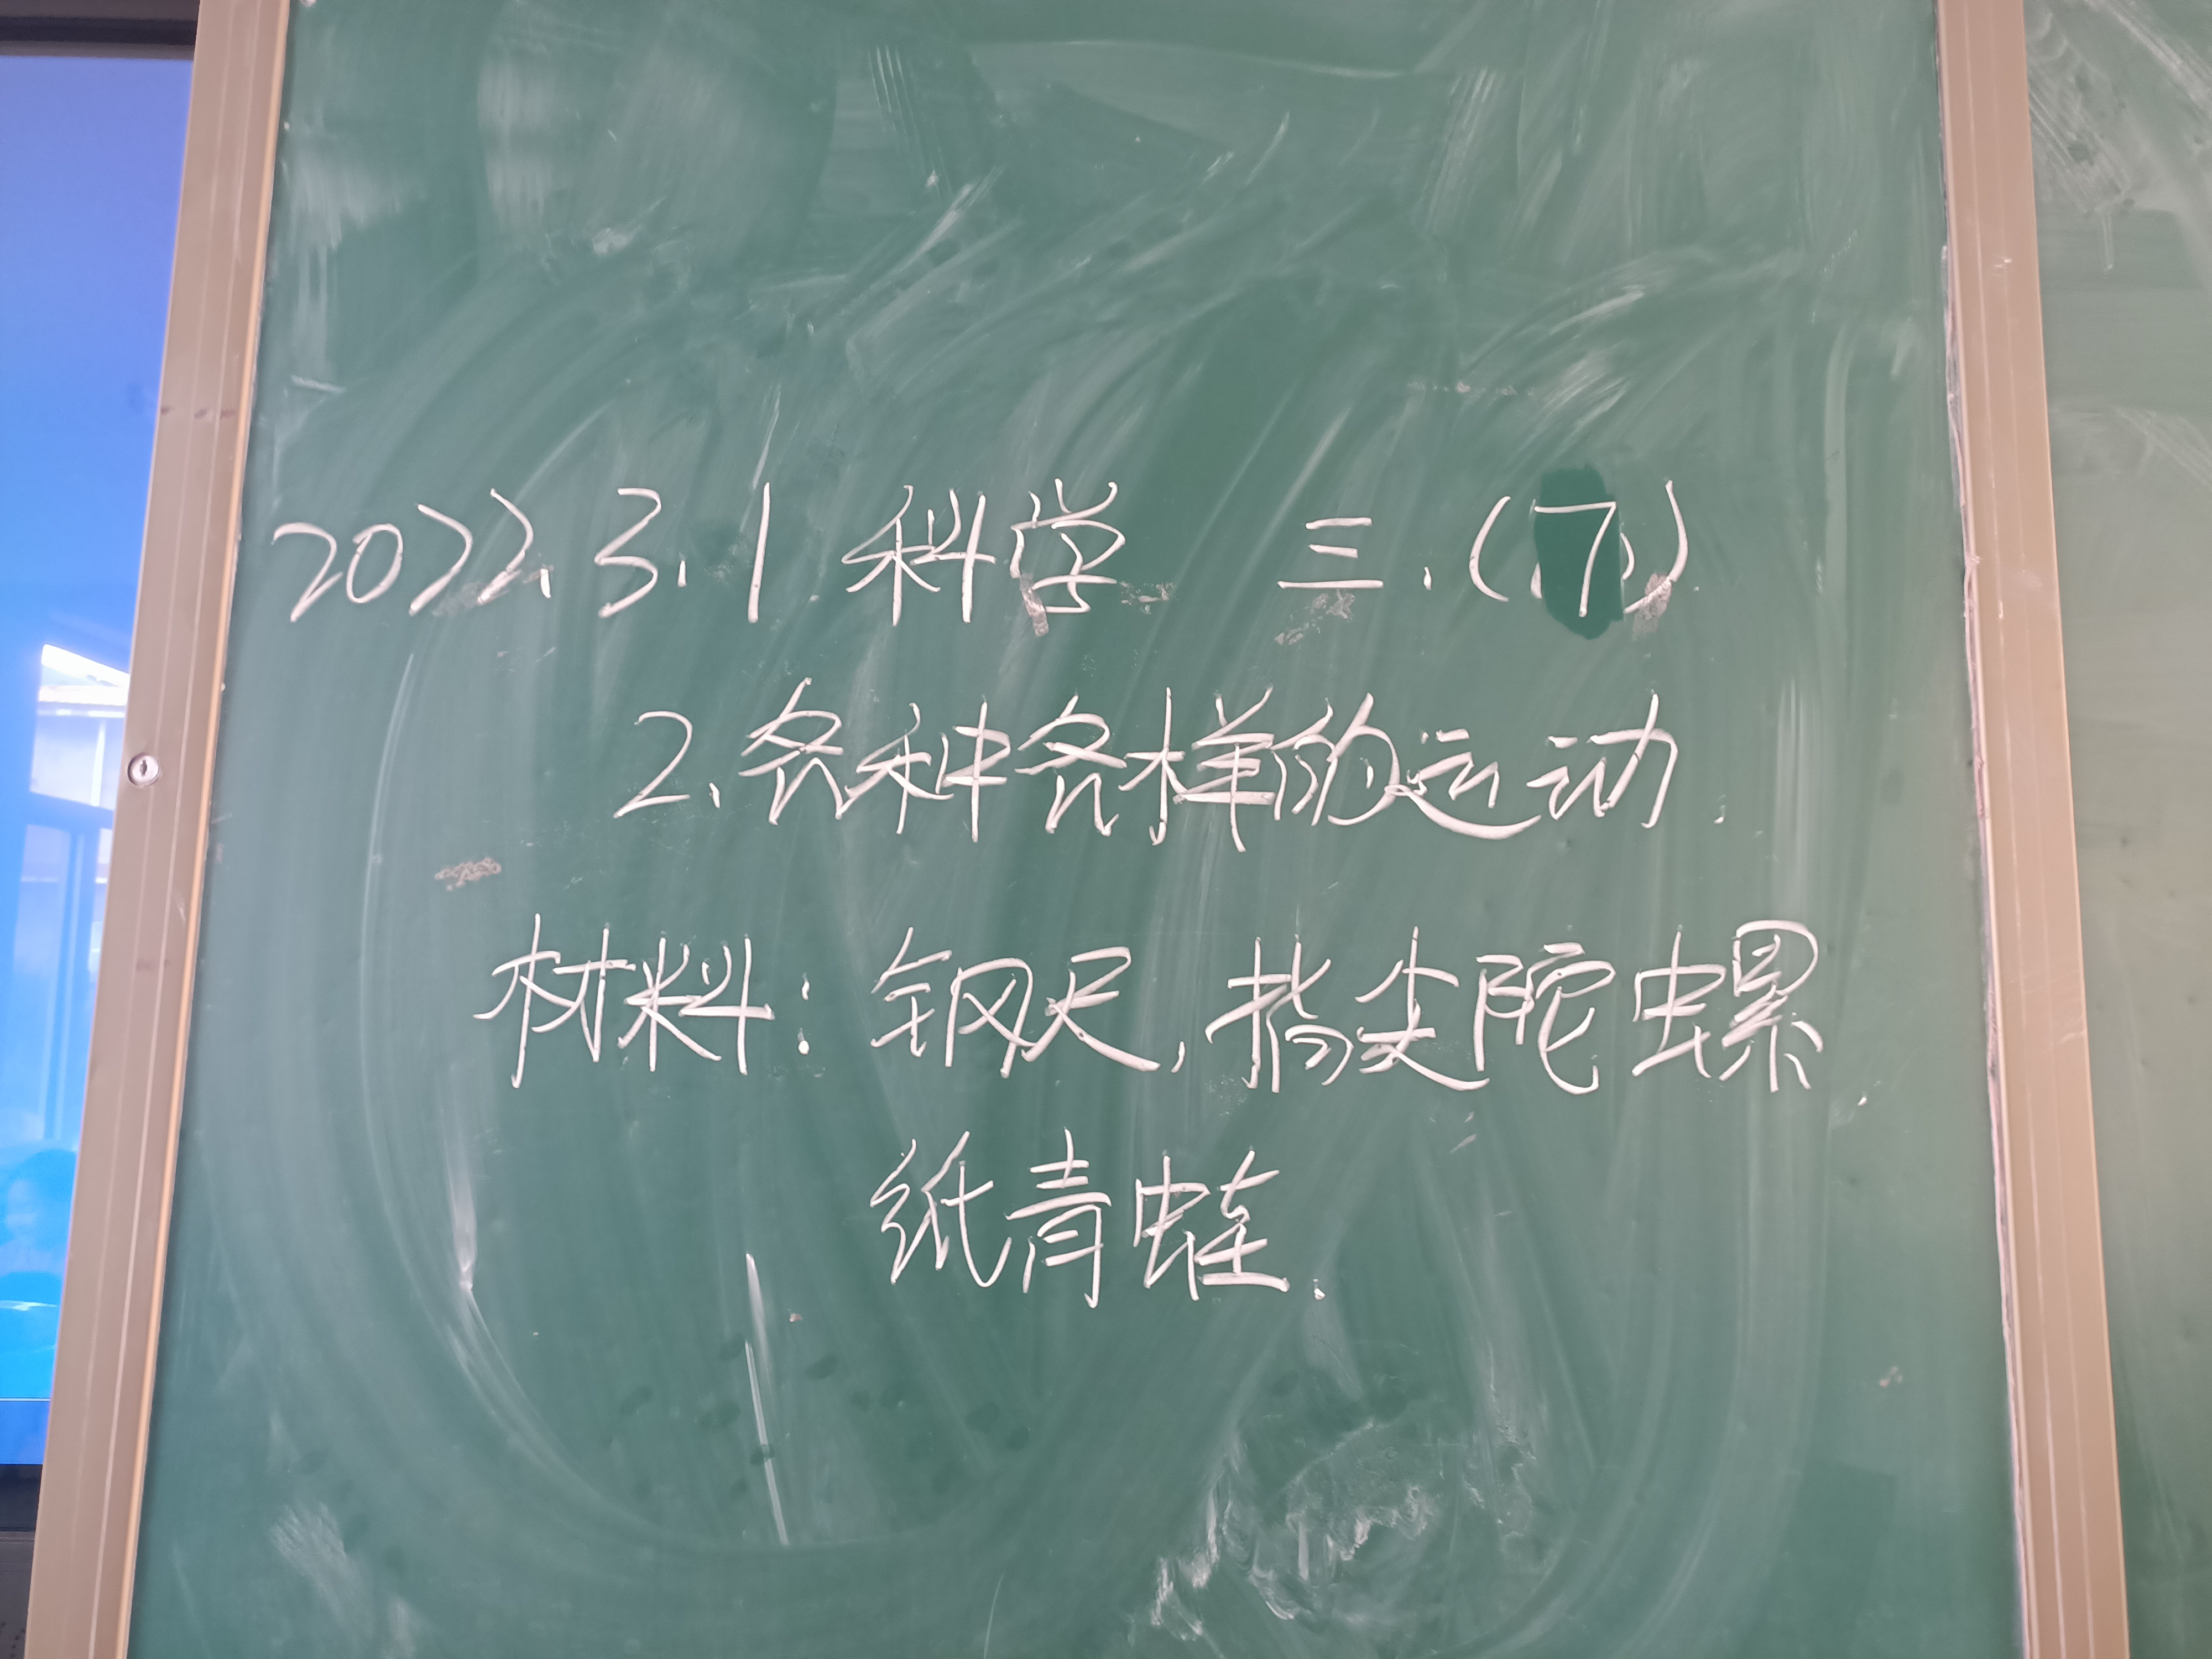 2022.3.1 科学 三.(7)
2.各种各样的运动.
材料:钢尺,指尖陀螺.
纸青蛙.